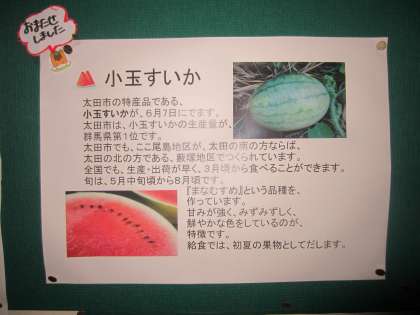 おまたせ
しました
小玉すいか
太田市の特産品である、
小玉すいかが、6月7日にでます。
太田市は、小玉すいかの生産量が、
群馬県第1位です。
太田市でも、ここ尾島地区が、太田の南の方ならば、
太田の北の方である、藪塚地区でつくられています。
全国でも、生産・出荷が早く、3月頃から食べることができます。
旬は、5月中旬頃から8月頃です。
『まなむすめ』という品種を、
作っています。
甘みが強く、みずみずしく、
鮮やかな色をしているのが、
特徴です。
給食では、初夏の果物としてだします。